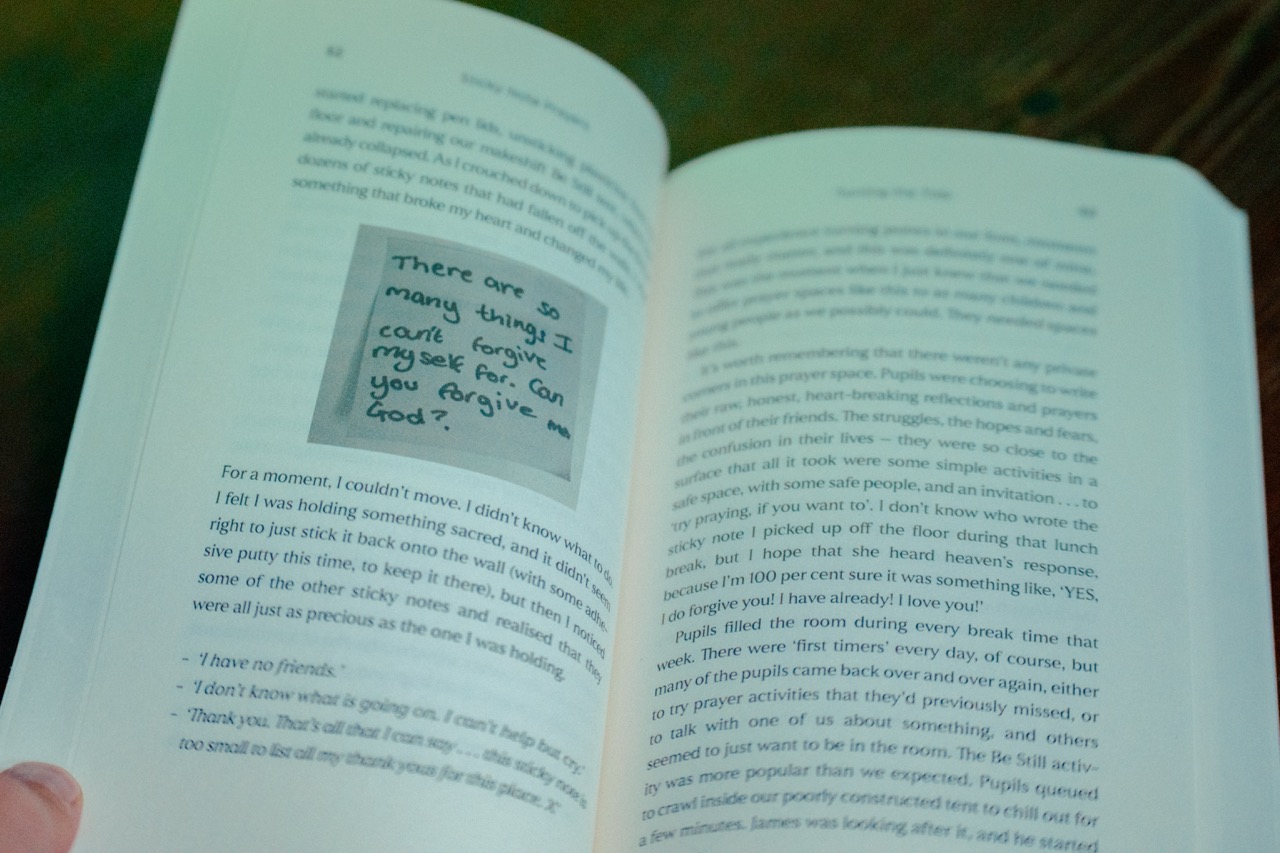 62
Sticky Note Prayers
started replacing pen lids, unsticking
floor and repairing our makeshift Be Still tent,
already collapsed. As I crouched down to pick up
dozens of sticky notes that had fallen off the
something that broke my heart and changed my
There are so
many things I
can't forgive
myself for. Can
you forgive me
God?.
For a moment, I couldn't move. I didn't know what to do.
I felt I was holding something sacred, and it didn't seem
right to just stick it back onto the wall (with some adhe-
sive putty this time, to keep it there), but then I noticed
some of the other sticky notes and realised that they
were all just as precious as the one I was holding.
- 'I have no friends.'
- 'I don't know what is going on. I can't help but cry.'
- 'Thank you. That's all that I can say . . . this sticky note's
too small to list all my thank yous for this place. X'
Turning the Tide
We all experience turning points in our lives, moments
that really matter, and this was definitely one of mine.
This was the moment when I just knew that we needed
to offer prayer spaces like this to as many children and
young people as we possibly could. They needed spaces
like this.
It's worth remembering that there weren't any private
corners in this prayer space. Pupils were choosing to write
their raw, honest, heart-breaking reflections and prayers
in front of their friends. The struggles, the hopes and fears,
the confusion in their lives – they were so close to the
surface that all it took were some simple activities in a
safe space, with some safe people, and an invitation . . . to
'try praying, if you want to'. I don't know who wrote the
sticky note I picked up off the floor during that lunch
break, but I hope that she heard heaven's response,
because I'm 100 per cent sure it was something like, 'YES,
I do forgive you! I have already! I love you!'
Pupils filled the room during every break time that
week. There were 'first timers' every day, of course, but
many of the pupils came back over and over again, either
to try prayer activities that they'd previously missed, or
to talk with one of us about something, and others
seemed to just want to be in the room. The Be Still activ-
ity was more popular than we expected. Pupils queued
to crawl inside our poorly constructed tent to chill out for
a few minutes. James was looking after it, and he started